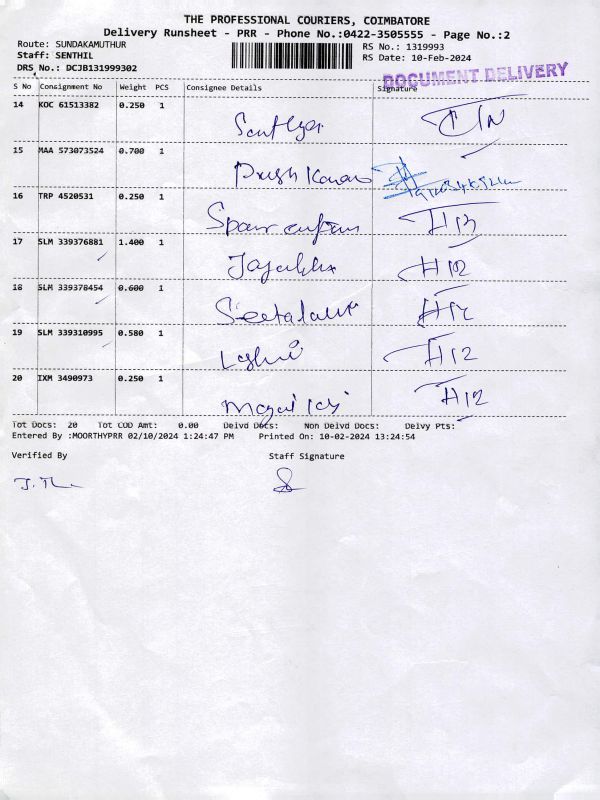 THE PROFESSIONAL COURIERS, COIMBATORE
Delivery Runsheet - PRR - Phone No.:0422-3505555 - Page No.:2
Route: SUNDAKAMUTHUR
Staff: SENTHIL
DRS No.: DCJB131999302
RS No.: 1319993
RS Date: 10-Feb-2024
DOCUMENT DELIVERY
S No Consignment No Weight PCS Consignee Details Signature
14 KOC 61513382 0.250 1
15 MAA 573073524 0.700 1
16 TRP 4520531 0.250 1
17 SLM 339376881 1.400 1
H12
18 SLM 339378454 0.600 1
H12
19 SLM 339310995 0.580 1
H12
20 IXM 3490973 0.250 1
H12
Tot Docs: 20 Tot COD Amt: 0.00 Delvd Docs: Non Delvd Docs: Delvy Pts:
Entered By :MOORTHYPRR 02/10/2024 1:24:47 PM Printed On: 10-02-2024 13:24:54
Verified By Staff Signature